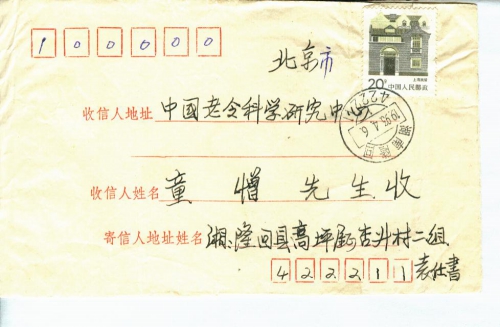 100000
北京市
20分
中国人民邮政
收信人地址 中国老令科学研究中心
收信人姓名 童憎先生收
寄信人地址姓名 湘隆回县高坪乡杏井村二组
422211 袁仕書
湖南隆回
1993.4.6